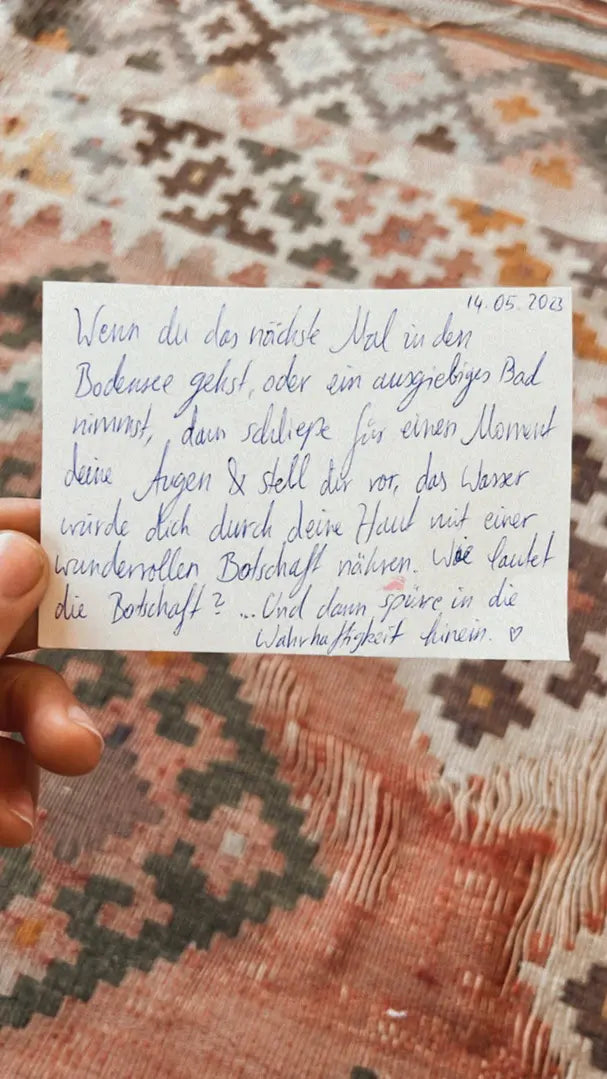 14.05.2023
Wenn du das nächste Mal in den
Bodensee gehst, oder ein ausgiebiges Bad
nimmst, dann schließe für einen Moment
deine Augen & stell dir vor, das Wasser
würde dich durch deine Haut mit einer
wundervollen Botschaft nähren. Wie lautet
die Botschaft? ... Und dann spüre in die
Wahrhaftigkeit hinein. ♡